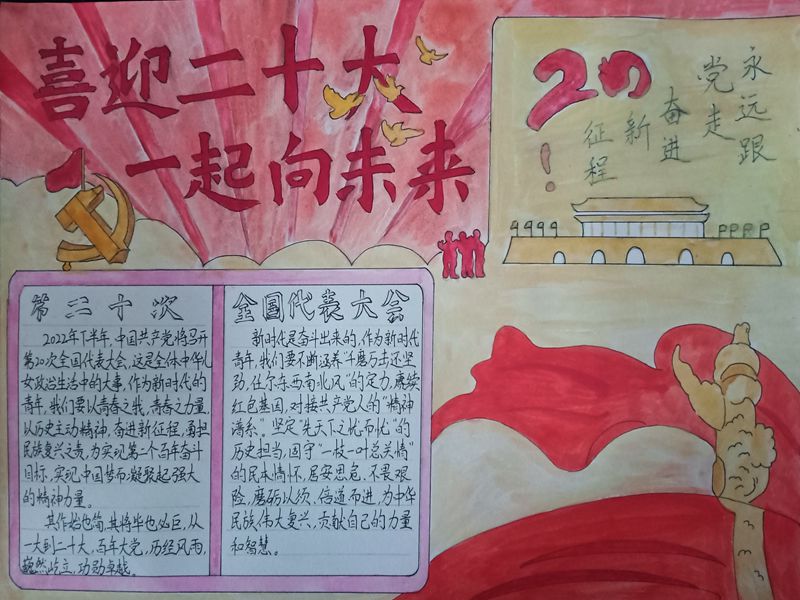 喜迎二十大
一起向未来
20
永远跟
党走
奋进
新
征程
！
第二十次
2022年下半年，中国共产党将召开
第20次全国代表大会，这是全体中华儿
女政治生活中的大事，作为新时代的
青年，我们要以青春之我，青春之力量，
以历史主动精神，奋进新征程，勇担
民族复兴之责，为实现第二个百年奋斗
目标，实现中国梦而凝聚起强大
的精神力量。
其作始也简，其将毕也必巨，从
一大到二十大，百年大党，历经风雨，
巍然屹立，功勋卓越。
全国代表大会
新时代是奋斗出来的，作为新时代
青年，我们要不断涵养“千磨万击还坚
劲，任尔东西南北风”的定力，赓续
红色基因，对接共产党人的“精神
谱系”。坚定“先天下之忧而忧”的
历史担当，固守“一枝一叶总关情”
的民本情怀，居安思危，不畏艰
险，磨砺以须、倍道而进，为中华
民族伟大复兴，贡献自己的力量
和智慧。